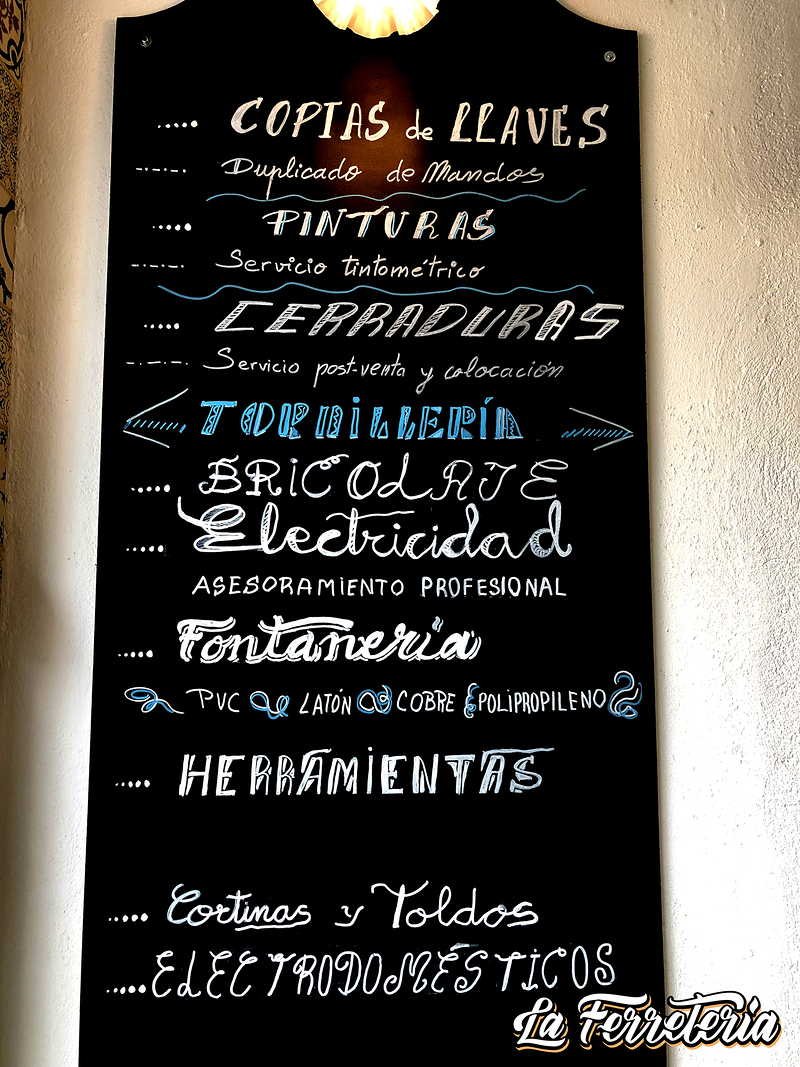 COPIAS de LLAVES
Duplicado de Mandos
PINTURAS
Servicio tintométrico
CERRADURAS
Servicio post-venta y colocación
TORNILLERÍA
BRICOLAJE
Electricidad
ASESORAMIENTO PROFESIONAL
Fontanería
PVC LATÓN COBRE POLIPROPILENO
HERRAMIENTAS
Cortinas y Toldos
ELECTRODOMÉSTICOS
La Ferretería